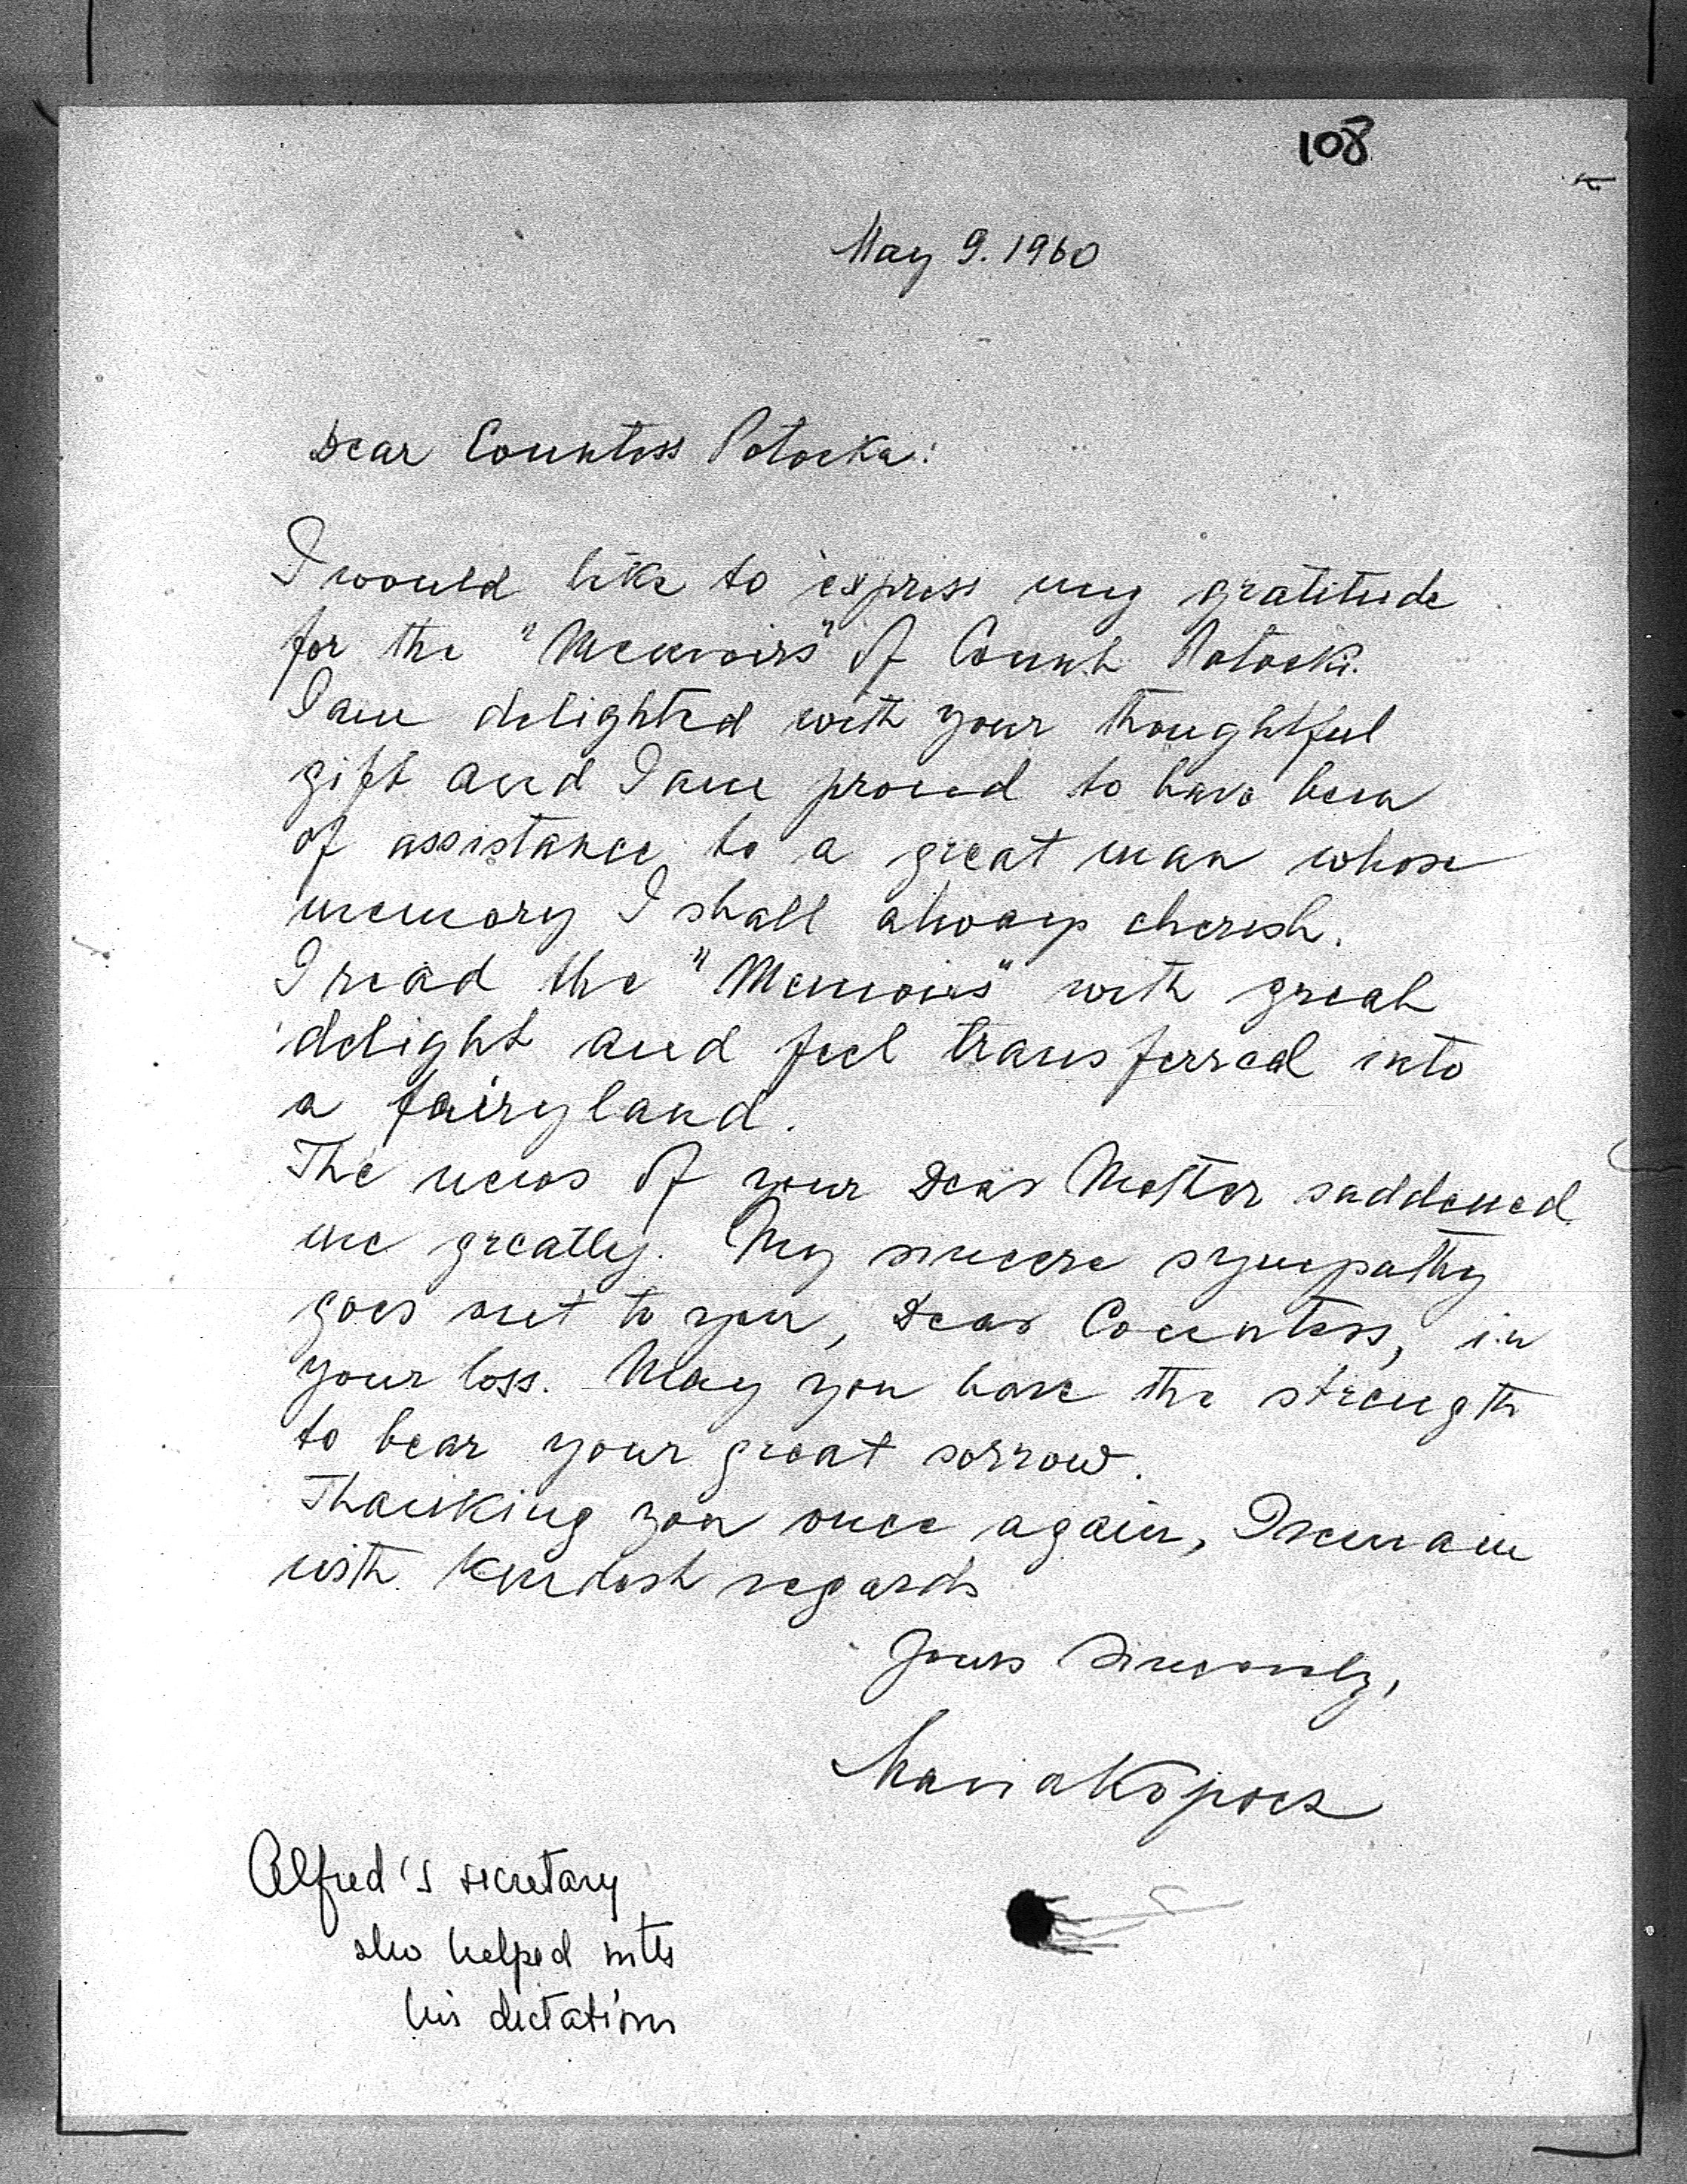 108
May 9. 1960
Dear Countess Potocka:
I would like to express my gratitude
for the "Memoirs" of Count Potocki.
I am delighted with your thoughtful
gift and I am proud to have been
of assistance to a great man whose
memory I shall always cherish.
I read the "Memoirs" with great
delight and feel transferred into
a fairyland.
The news of your Dear Mother saddened
me greatly. My sincere sympathy
goes out to you, Dear Countess, in
your loss. May you have the strength
to bear your great sorrow.
Thanking you once again, I remain
with kindest regards
Yours Sincerely,
Maria
Alfred's secretary
who helped with
his dictations